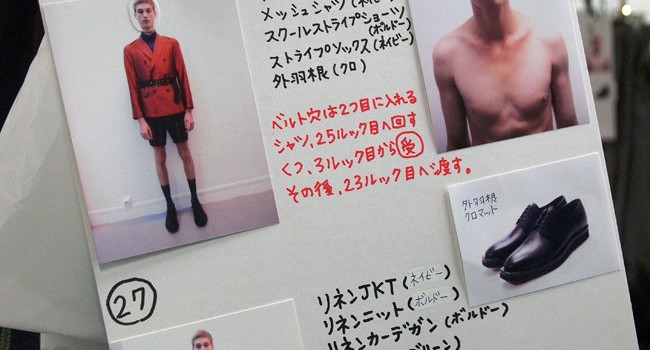 メッシュシャツ(ネイビー)
スクールストライプショーツ
(ボルドー)
ストライプソックス(ネイビー)
外羽根(クロ)
ベルト穴は2つ目に入れる
シャツ、25ルック目へ回す
くつ、3ルック目から受
その後、23ルック目へ渡す。
外羽根
クロマット
27
リネンJKT(ネイビー)
リネンニット(ボルドー)
リネンカーデガン(ボルドー)